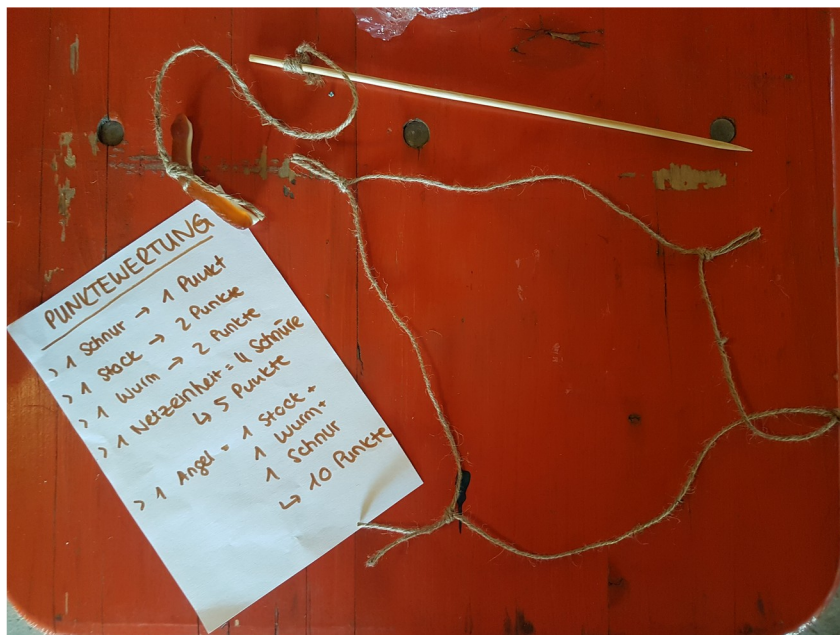 PUNKTEWERTUNG
> 1 Schnur → 1 Punkt
> 1 Stock → 2 Punkte
> 1 Wurm → 2 Punkte
> 1 Netzeinheit = 4 Schnüre
↳ 5 Punkte
> 1 Angel = 1 Stock +
1 Wurm +
1 Schnur
↳ 10 Punkte